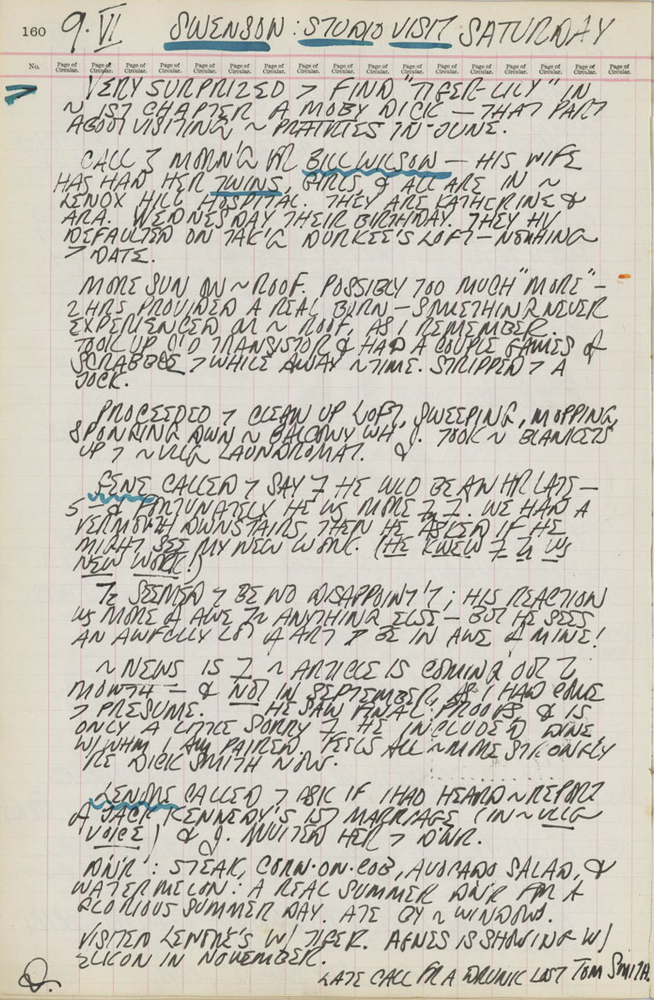 160 9·VI SWENSON: STUDIO VISIT SATURDAY
No. Page of Circular. Page of Circular. Page of Circular. Page of Circular. Page of Circular. Page of Circular. Page of Circular. Page of Circular. Page of Circular. Page of Circular. Page of Circular. Page of Circular. Page of Circular. Page of Circular. Page of Circular. Page of Circular.
VERY SURPRIZED > FIND "TIGER-LILY" IN
~ 1ST CHAPTER A MOBY DICK — THAT PART
ABOUT VISITING ~ PRAIRIES IN JUNE.
CALL MORN'G BILL WILSON — HIS WIFE
HAS HAD HER TWINS, GIRLS, & ALL ARE IN ~
LENOX HILL HOSPITAL. THEY ARE KATHERINE &
ARA. WEDNESDAY THEIR BIRTHDAY. THEY HV
DEFAULTED ON TAK'G DURKEE'S LOFT — NOTHING
> DATE.
MORE SUN ON ~ ROOF. POSSIBLY TOO MUCH "MORE" —
2 HRS PROVIDED A REAL BURN — SOMETHING I NEVER
EXPERIENCED ON ~ ROOF, AS I REMEMBER.
TOOK UP OLD TRANSISTOR & HAD A COUPLE GAMES OF
SCRABBLE > WHILE AWAY ~ TIME. STRIPPED > A
JOCK.
PROCEEDED > CLEAN UP LOFT, SWEEPING, MOPPING,
SPONGING DWN ~ BALCONY WH J. TOOK ~ BLANKETS
UP > ~ VLLG LAUNDROMAT.
GENE CALLED > SAY HE WLD BE AN HR LATE —
5 — & FORTUNATELY HE WS MORE WE HAD A
VERMOUTH DOWNSTAIRS THEN HE ASKED IF HE
MIGHT SEE MY NEW WORK. (HE KNEW WS
NEW WORK!)
SEEMED > BE NO DISAPPOINT'T; HIS REACTION
WS MORE A AWE ANYTHING ELSE — BUT HE SEES
AN AWFULLY LOT OF ART > BE IN AWE OF MINE!
~ NEWS IS ~ ARTICLE IS COMING OUT
MONTH — & NOT IN SEPTEMBER, AS I HAD COME
> PRESUME. HE SAW FINAL PROOFS & IS
ONLY A LITTLE SORRY HE INCLUDED DINE
W/WHM I AM PAIRED. FEELS ALL ~ MORE STRONGLY
RE DICK SMITH NOW.
LENORE CALLED > ASK IF I HAD HEARD ~ REPORT
A JACK KENNEDY'S 1ST MARRIAGE (IN ~ VLLG
VOICE) & J. INVITED HER > DNR.
DNR: STEAK, CORN·ON·COB, AVOCADO SALAD, &
WATERMELON: A REAL SUMMER DNR FOR A
GLORIOUS SUMMER DAY. ATE BY ~ WINDOWS.
VISITED LENORE'S W/ TIGER. AGNES IS SHOWING W/
ELKON IN NOVEMBER.
LATE CALL FR A DRUNK LOST TOM SMITH.